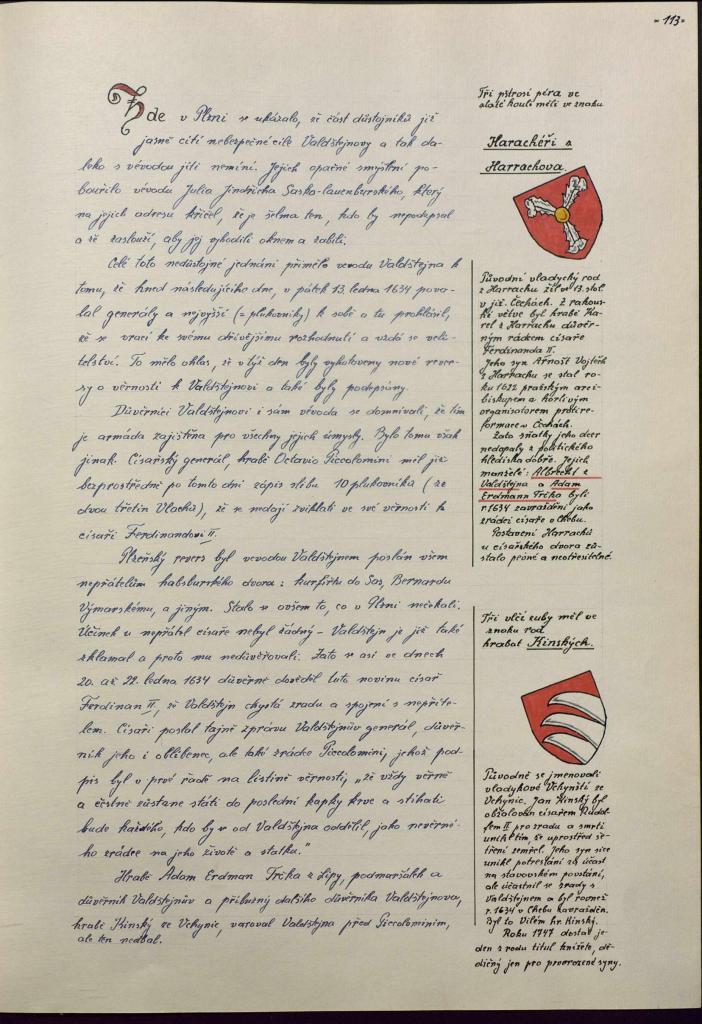 - 113 -
Zde v Plzni se ukázalo, že část důstojníků již
jasně cítí nebezpečné cíle Valdštejnovy a tak da-
leko s vévodou jíti nemíní. Jejich opačné smýšlení po-
bouřilo vévodu Julia Jindřicha Sasko-lauenburského, který
na jejich adresu křičel, že je šelma ten, kdo by nepodepsal
a že zaslouží, aby jej vyhodili oknem a zabili.
Celé toto nedůstojné jednání přimělo vévodu Valdštejna k
tomu, že hned následujícího dne, v pátek 13. ledna 1634 povo-
lal generály a nejvyšší (= plukovníky) k sobě a tu prohlásil,
že se vrací ke svému dřívějšímu rozhodnutí a vzdá se veli-
telství. To mělo ohlas, že v týž den byly vyhotoveny nové rever-
sy o věrnosti k Valdštejnovi a také byly podepsány.
Důvěrníci Valdštejnovi i sám vévoda se domnívali, že tím
je armáda zajištěna pro všechny jejich úmysly. Bylo tomu však
jinak. Císařský generál, hrabě Octavio Piccolomini měl již
bezprostředně po tomto dni zápis slibu 10 plukovníků (ze
dvou třetin Vlachů), že se nedají zviklati ve své věrnosti k
císaři Ferdinandovi II.
Plzeňský revers byl vévodou Valdštejnem poslán všem
nepřátelům habsburského dvora: kurfiřtu do Sas, Bernardu
Výmarskému, a jiným. Stalo se ovšem to, co v Plzni nečekali.
Účinek u nepřátel císaře nebyl žádný – Valdštejn je již také
zklamal a proto mu nedůvěřovali. Zato se asi ve dnech
20. až 22. ledna 1634 důvěrně dověděl tuto novinu císař
Ferdinan II, že Valdštejn chystá zradu a spojení s nepříte-
lem. Císaři poslal tajně zprávu Valdštejnův generál, důvěr-
ník jeho i oblíbenec, ale také zrádce Piccolomini, jehož pod-
pis byl v prvé řadě na listině věrnosti, „že vždy věrně
a čestně zůstane státi do poslední kapky krve a stíhati
bude každého, kdo by se od Valdštejna oddělil, jako nevěrné-
ho zrádce na jeho životě a statku."
Hrabě Adam Erdman Trčka z Lípy, podmaršálek a
důvěrník Valdštejnův a příbuzný dalšího důvěrníka Valdštejnova,
hrabě Kinský ze Vchynic, varoval Valdštejna před Piccolominim,
ale ten nedbal.
Tři pštrosí péra ve
zlaté kouli měli ve znaku
Harachéři z
Harrachova.
Původní vladycký rod
z Harrachu žil ve 13. stol.
v již. Čechách. Z rakous-
ké větve byl hrabě Ka-
rel z Harrachu důvěr-
ným rádcem císaře
Ferdinanda II.
Jeho syn Arnošt Vojtěch
z Harrachu se stal ro-
ku 1622 pražským arci-
biskupem a horlivým
organisátorem protire-
formace v Čechách.
Zato sňatky jeho dcer
nedopadly z politického
hlediska dobře. Jejich
manželé: Albrecht z
Valdštejna a Adam
Erdmann Trčka byli
r. 1634 zavražděni jako
zrádci císaře v Chebu.
Postavení Harrachů
u císařského dvora zů-
stalo pevné a neotřesitelné.
Tři vlčí zuby měl ve
znaku rod
hrabat Kinských.
Původně se jmenovali
vladykové Vchynští ze
Vchynic. Jan Kinský byl
obžalován císařem Rudol-
fem II pro zradu a smrti
unikl tím, že uprostřed še-
tření zemřel. Jeho syn sice
unikl potrestání za účast
na stavovském povstání,
ale účastnil se zrady s
Valdštejnem a byl rovněž
r. 1634 v Chebu zavražděn.
Byl to Vilém hr. Kinský.
Roku 1747 dostal je-
den z rodu titul knížete, dě-
dičný jen pro prvorozené syny.